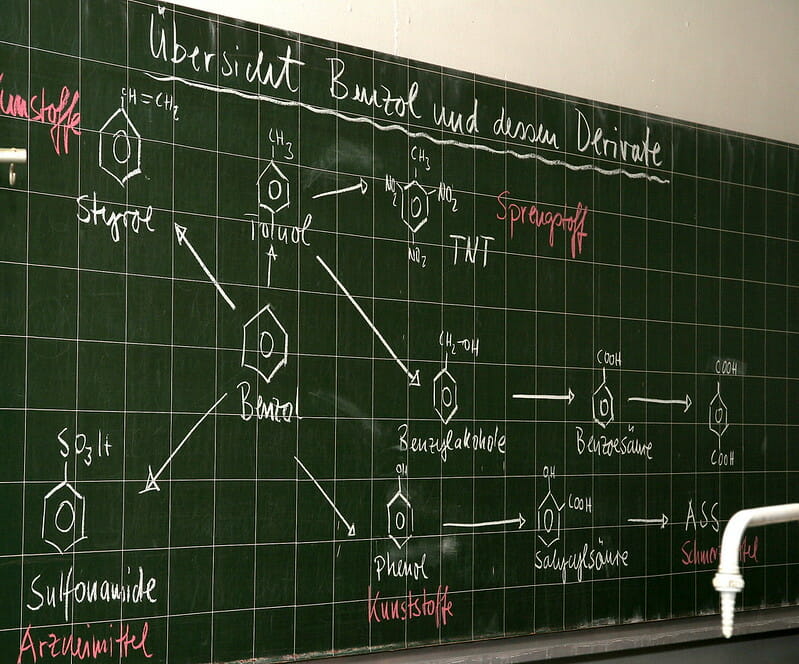 Übersicht Benzol und dessen Derivate
unststoffe
CH=CH₂
Styrol
CH₃
Toluol
CH₃
NO₂
NO₂
NO₂
TNT
Sprengstoff
Benzol
CH₂-OH
Benzylakohole
COOH
Benzoesäure
COOH
COOH
SO₃H
Sulfonamide
Arzneimittel
OH
Phenol
Kunststoffe
OH
COOH
Salycylsäure
ASS